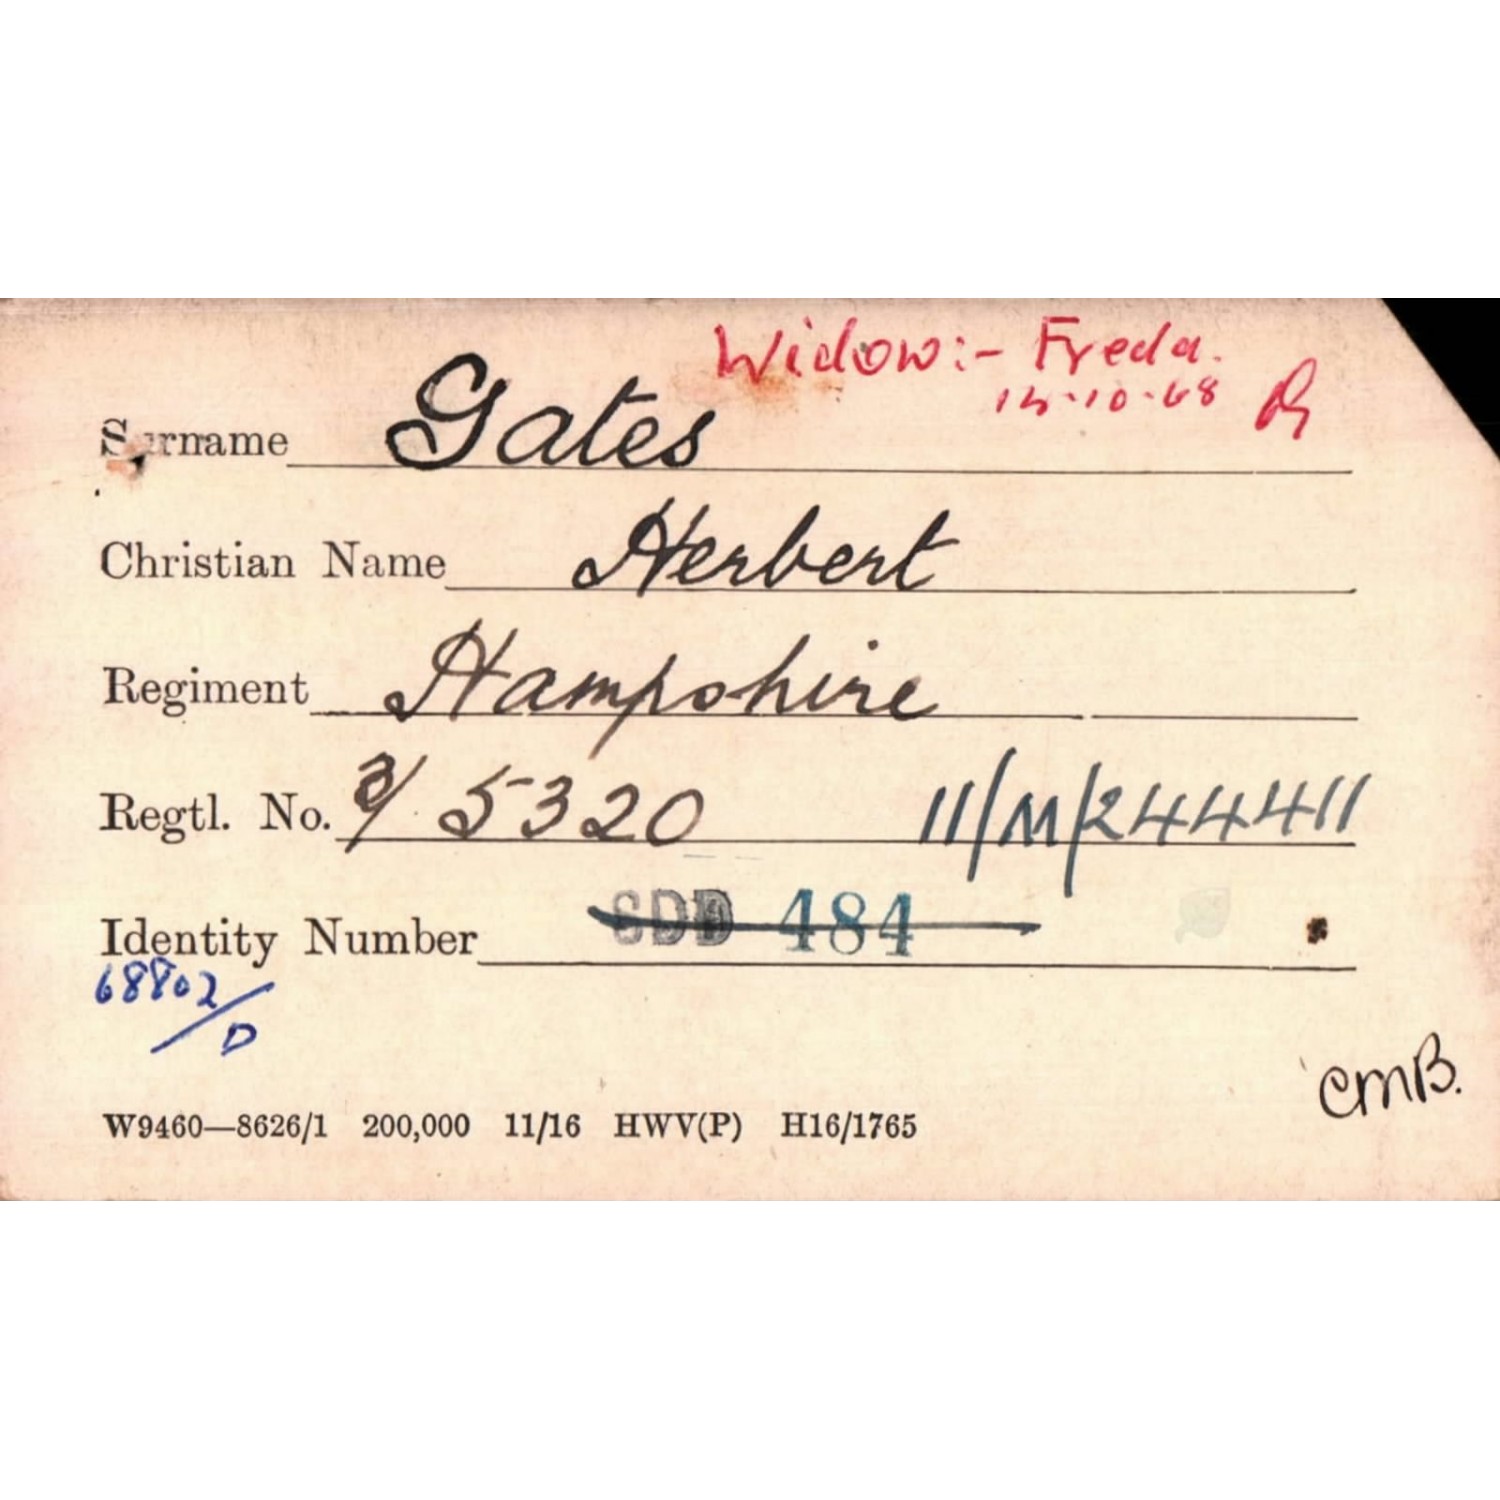 Widow:- Freda.
Surname Gates
Christian Name Herbert
Regiment Hampshire
Regtl. No. 3/ 5320 11/M/244411
Identity Number SDD 484
68802/D
CMB.
W9460—8626/1 200,000 11/16 HWV(P) H16/1765